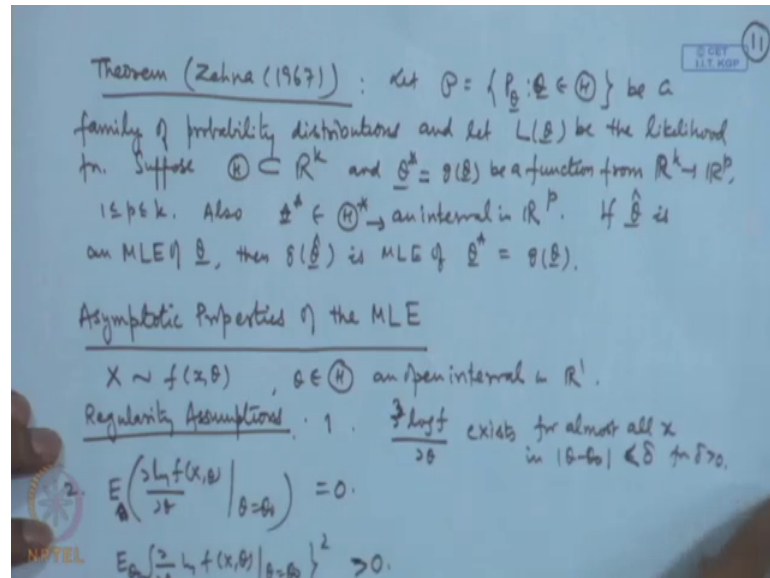 11
© CET
I.I.T. KGP
Theorem (Zehna (1967)) : Let P = { P_θ : θ ∈ Ⓗ } be a
family of probability distributions and let L(θ) be the likelihood
fn. Suppose Ⓗ ⊂ ℝ^k and θ* = g(θ) be a function from ℝ^k → ℝ^p,
1≤p≤k. Also θ* ∈ Ⓗ* → an interval in ℝ^p. If θ̂ is
an MLE of θ, then g(θ̂) is MLE of θ* = g(θ).
Asymptotic Properties of the MLE
X ~ f(x,θ) , θ ∈ Ⓗ an open interval in ℝ¹.
Regularity Assumptions . 1. ∂ log f / ∂θ exists for almost all x
in |θ-θ₀| < δ for δ>0.
2. E_θ ( ∂ ln f(x,θ) / ∂θ |_{θ=θ₀} ) = 0.
E_θ₀ { ∂/∂θ ln f(x,θ) |_{θ=θ₀} }² > 0.
NPTEL